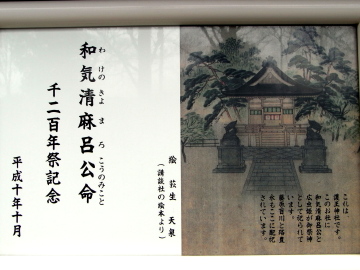 和気清麻呂公命
わけの きよ まろ こうのみこと
千二百年祭記念
平成十年十月
絵 芸生 天泉
(講談社の絵本より)
これは
護王神社です。
このお社に
和気清麻呂公と
広虫姫が御祭神
として祀られて
います。
藤原百川と路豊
永もここに配祀
されています。